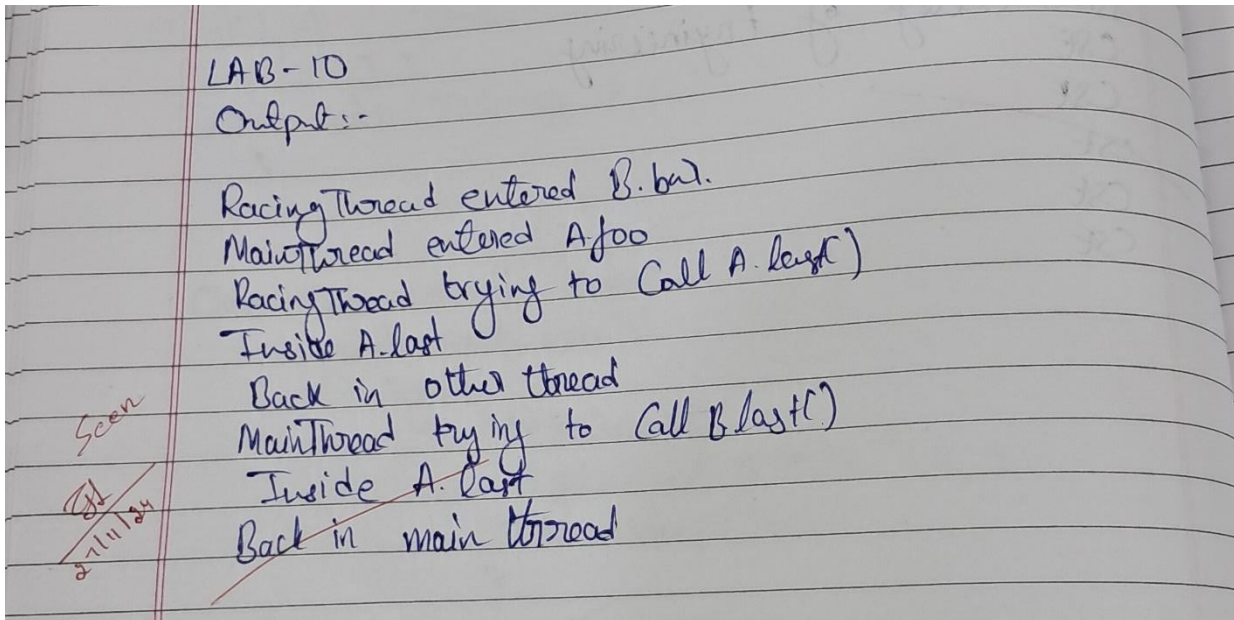 LAB-10
Output:-
RacingThread entered B.bar.
MainThread entered A foo
RacingThread trying to Call A.last()
Inside A.last
Back in other thread
MainThread trying to Call B last()
Inside A.last
Back in main thread
Seen
27/11/24